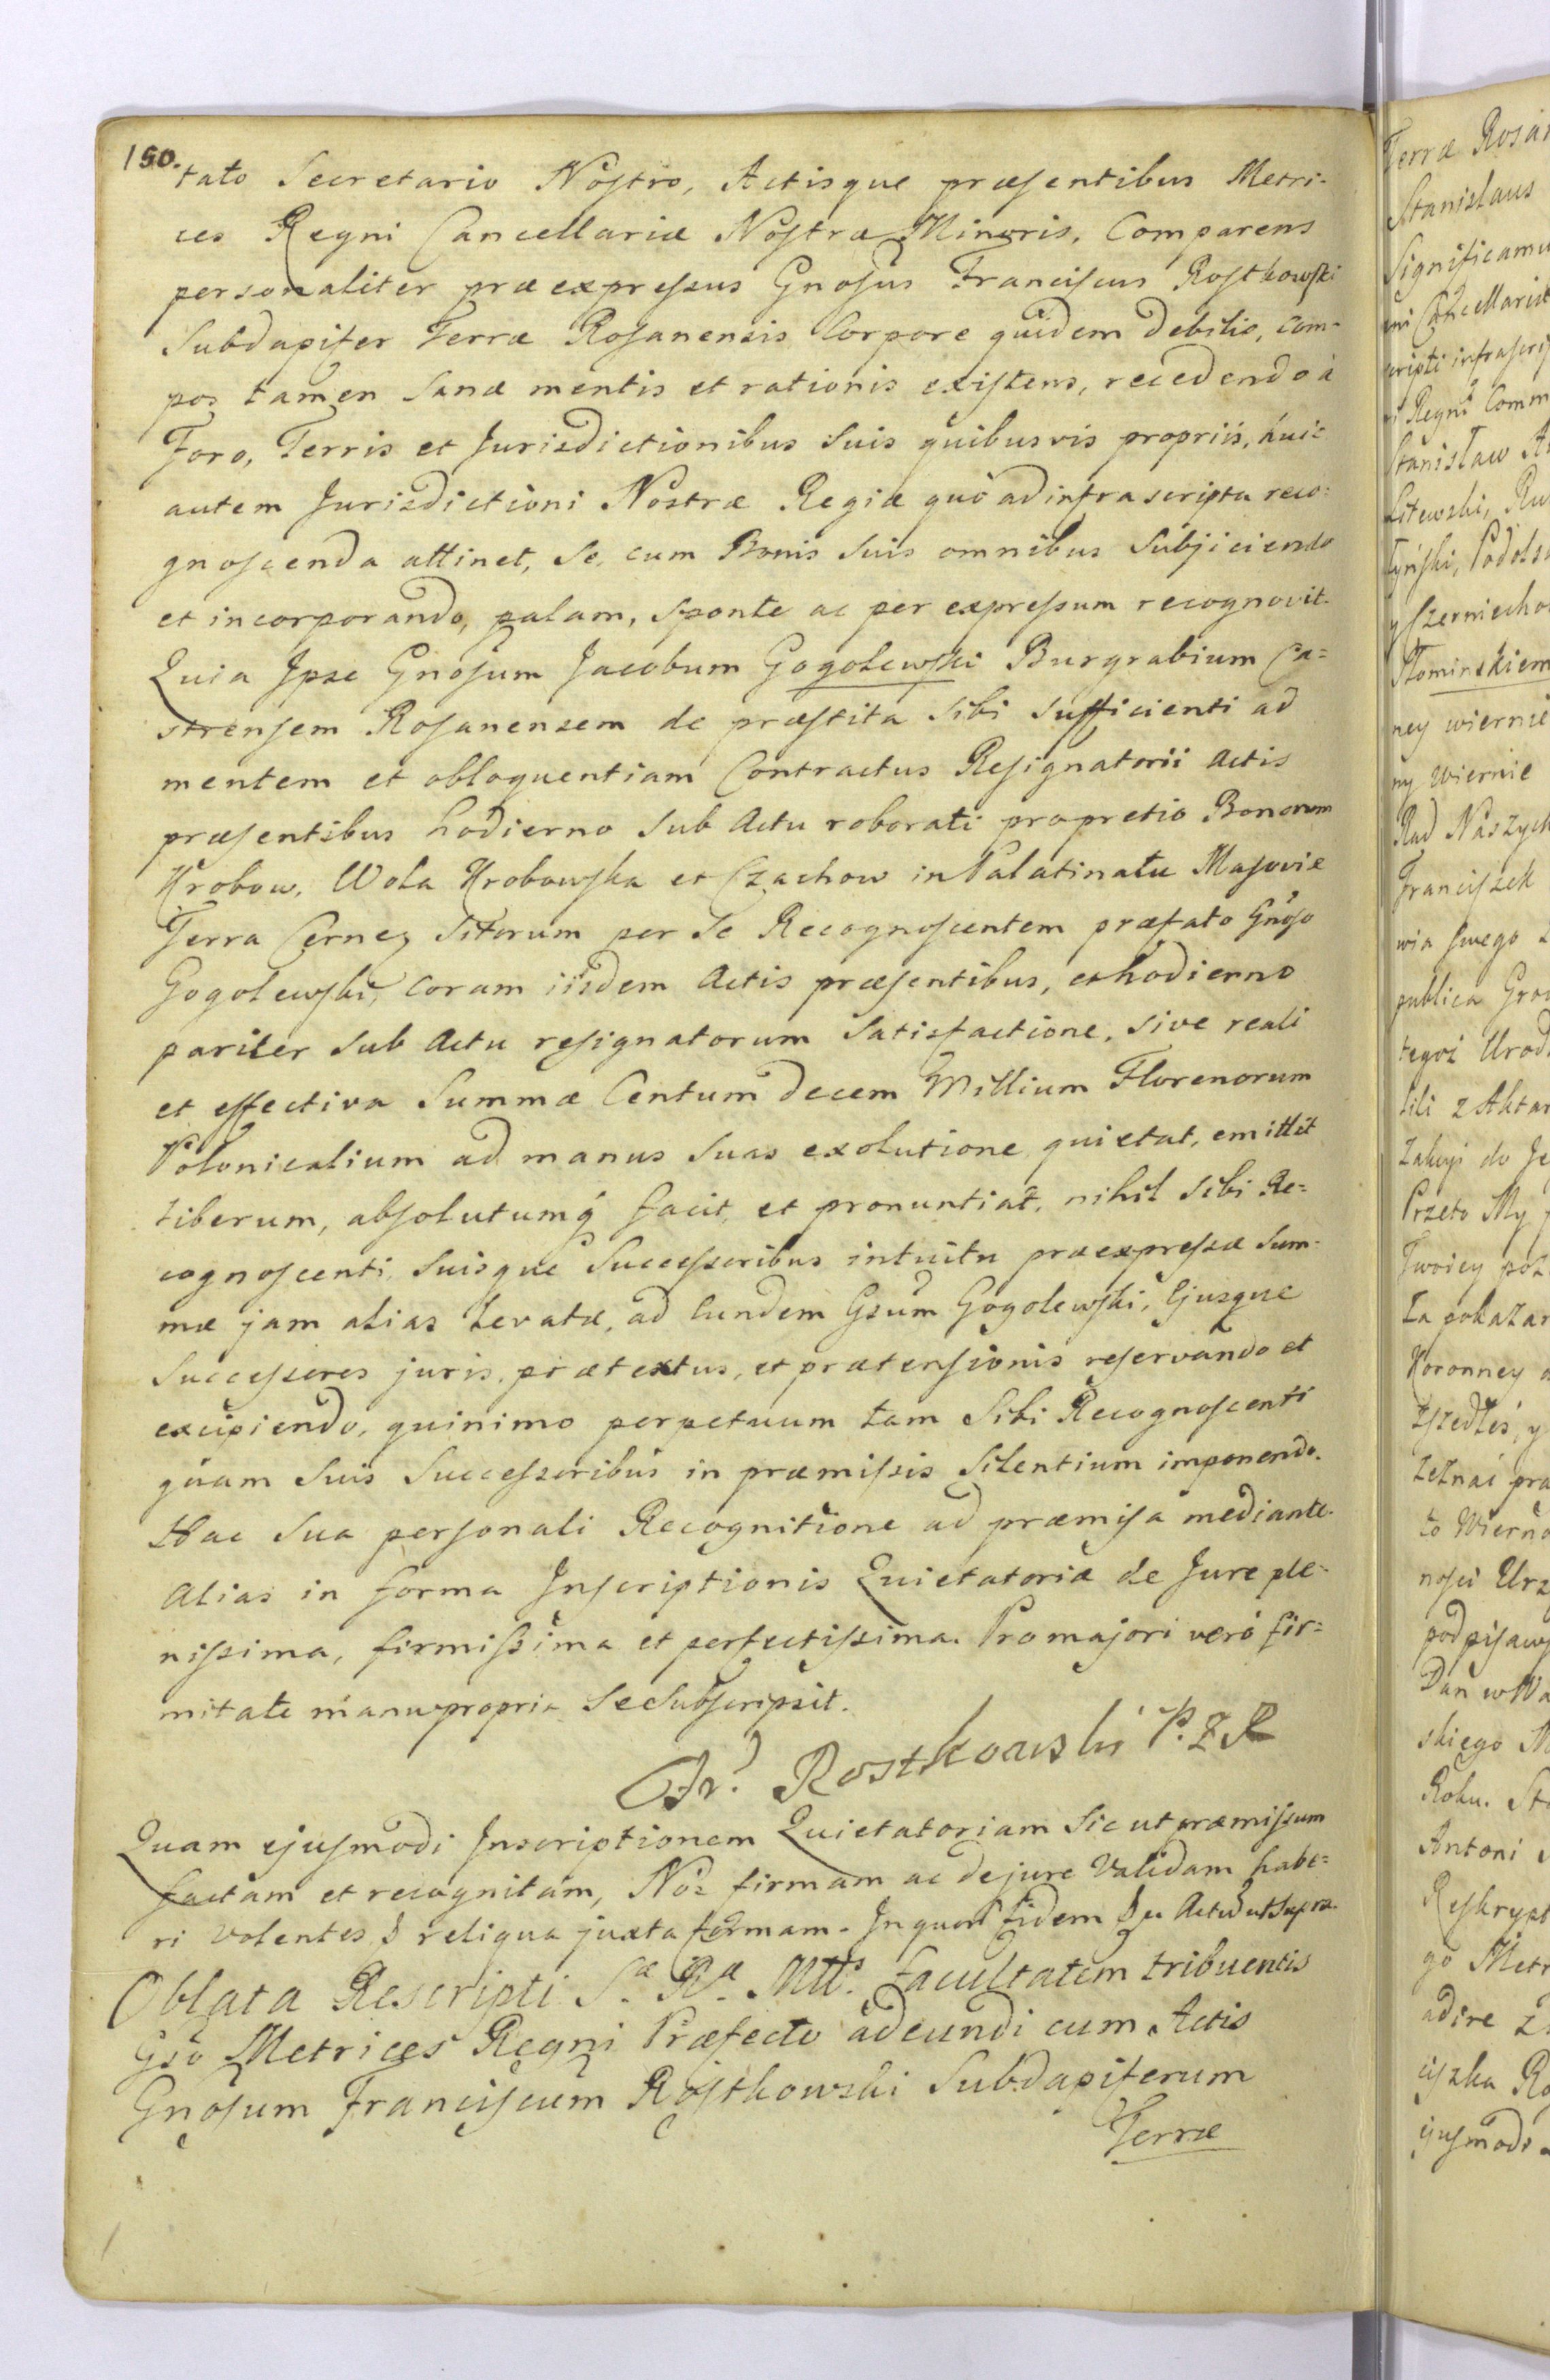 150.
tato Secretario Nostro, Actisque præsentibus Metri-
ces Regni Cancellariæ Nostræ Minoris, Comparens
personaliter præexpressus Gnosus Franciscus Rostkowski
Subdapifer Terræ Rosanensis Corpore quidem debilis, com-
pos tamen Sanæ mentis et rationis existens, recedendo à
Foro, Terris et Jurisdictionibus Suis quibusvis propriis, huic
autem Jurisdictioni Nostræ Regiæ quò ad infrascripta reco-
gnoscenda attinet, Se, cum Bonis Suis omnibus Subjiciendo
et incorporando, palam, Sponte ac per expressum recognovit.
Quia Ipse Gnosum Jacobum Gogolewski Burgrabium Ca=
strensem Rosanensem de præstita Sibi Sufficienti ad
mentem et obloquentiam Contractus Resignatorii Actis
præsentibus hodierno Sub Actu roborati pro pretio Bonorum
Krobow, Wola Krobowska et Czachow in Palatinatu Masoviæ
Terra Cernen Sitorum per Se Recognoscentem præfato Gnoso
Gogolewski, Coram iisdem Actis præsentibus, et hodierno
pariter Sub Actu resignatorum Satisfactione, Sive reali
et effectiva Summæ Centum decem Millium Florenorum
Polonicalium ad manus Suas exolutione quietat, emittit
liberum, absolutumq facit, et pronuntiat, nihil Sibi Re=
cognoscenti, Suisque Successoribus intuitu præexpressæ Sum-
mæ jam alias Levatæ, ad Eundem Gsum Gogolewski, Ejusque
Successores juris, prætextus, et prætensionis reservando et
excipiendo, quinimo perpetuum tam Sibi Recognoscenti
quam Suis Successoribus in præmissis Silentium imponendo.
Hac Sua personali Recognitione ad præmissa mediante.
Alias in forma Inscriptionis Quietatoriæ de Jure ple-
nissima, firmissima et perfectissima. Pro majori verò fir=
mitate manu propria Se Subscripsit.
Fr. Rostkowski P. Z R
Quam ejusmodi Inscriptionem Quietatoriam Sic ut præmissum
factam et recognitam, Nos firmam ac de jure Validam habe=
ri Volentes reliqua juxta formam. In quorum fidem Actu ut Supra.
Oblata Rescripti Sæ Ræ Mttis facultatem tribuentis
Gso Metrices Regni Præfecto adeundi cum Actis
Gnosum Franciscum Rostkowski Subdapiferum
Terræ
Terræ Rosan
Stanislaus
Significamu
Cancellariæ
infrascri
Regni Comm
Stanisław
Litewski,
Podols
Czerniecho
Słominskiem
ney wiernie
Wiernie
Rad Naszych
Franciszek
wia Swego
publica Gro
tegoż Urod
z Aktam
do Je
Przeto My
Twoiey
za pokazan
Koronney
y
zeznai
to Wierno
nosci Urz
podpisawsz
Dan w Wa
skiego
Roku. Sta
Antoni
Reskrypt
go Metr
adire
ciszka Ro
ejusmodi